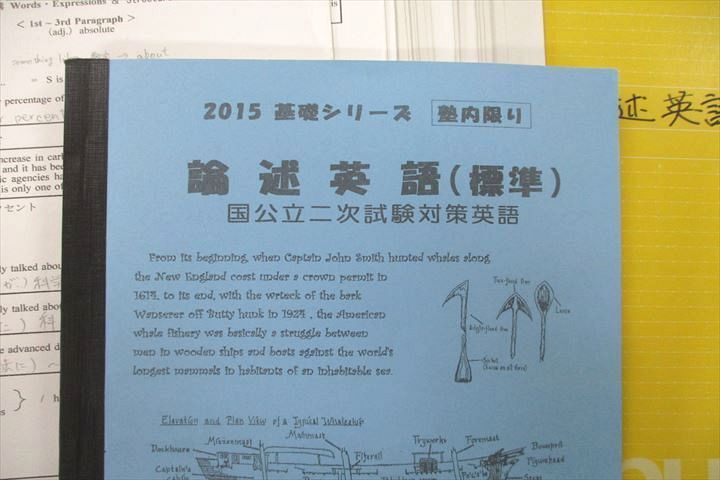 Words · Expressions & Structur
< 1st ~ 3rd Paragraph >
(adj.) absolute
something like
→ about
= S is
percentage of
percen
increase in car
and it has bee
ic agencies ha
is only one of
クセント
ly talked abou
ly talked abou
e advanced d
2015 基礎シリーズ 塾内限り
論述英語(標準)
国公立二次試験対策英語
From its beginning, when Captain John Smith hunted whales along
the New England coast under a crown permit in
1614, to its end, with the wrteck of the bark
Wanserer off Butty hunk in 1924 , the American
whale fishery was basically a struggle between
men in wooden ships and boats against the world's
longest mammals in habitants of an inhabitable sea.
Two-flued Iron
Lance
Single-flued Iron
Socket
Elevation and Plan View of a Typical Whaleship
Mainmast
Deckhouse
Fiferail
Tryworks
Foremast
Bowsprit
Figurehead
Captain's
Stem
述英語